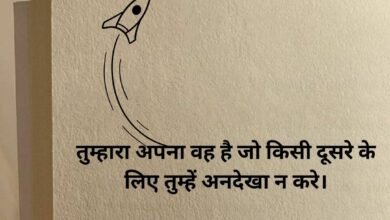 तुम्हारा अपना वह है जो किसी दूसरे के
लिए तुम्हें अनदेखा न करे।